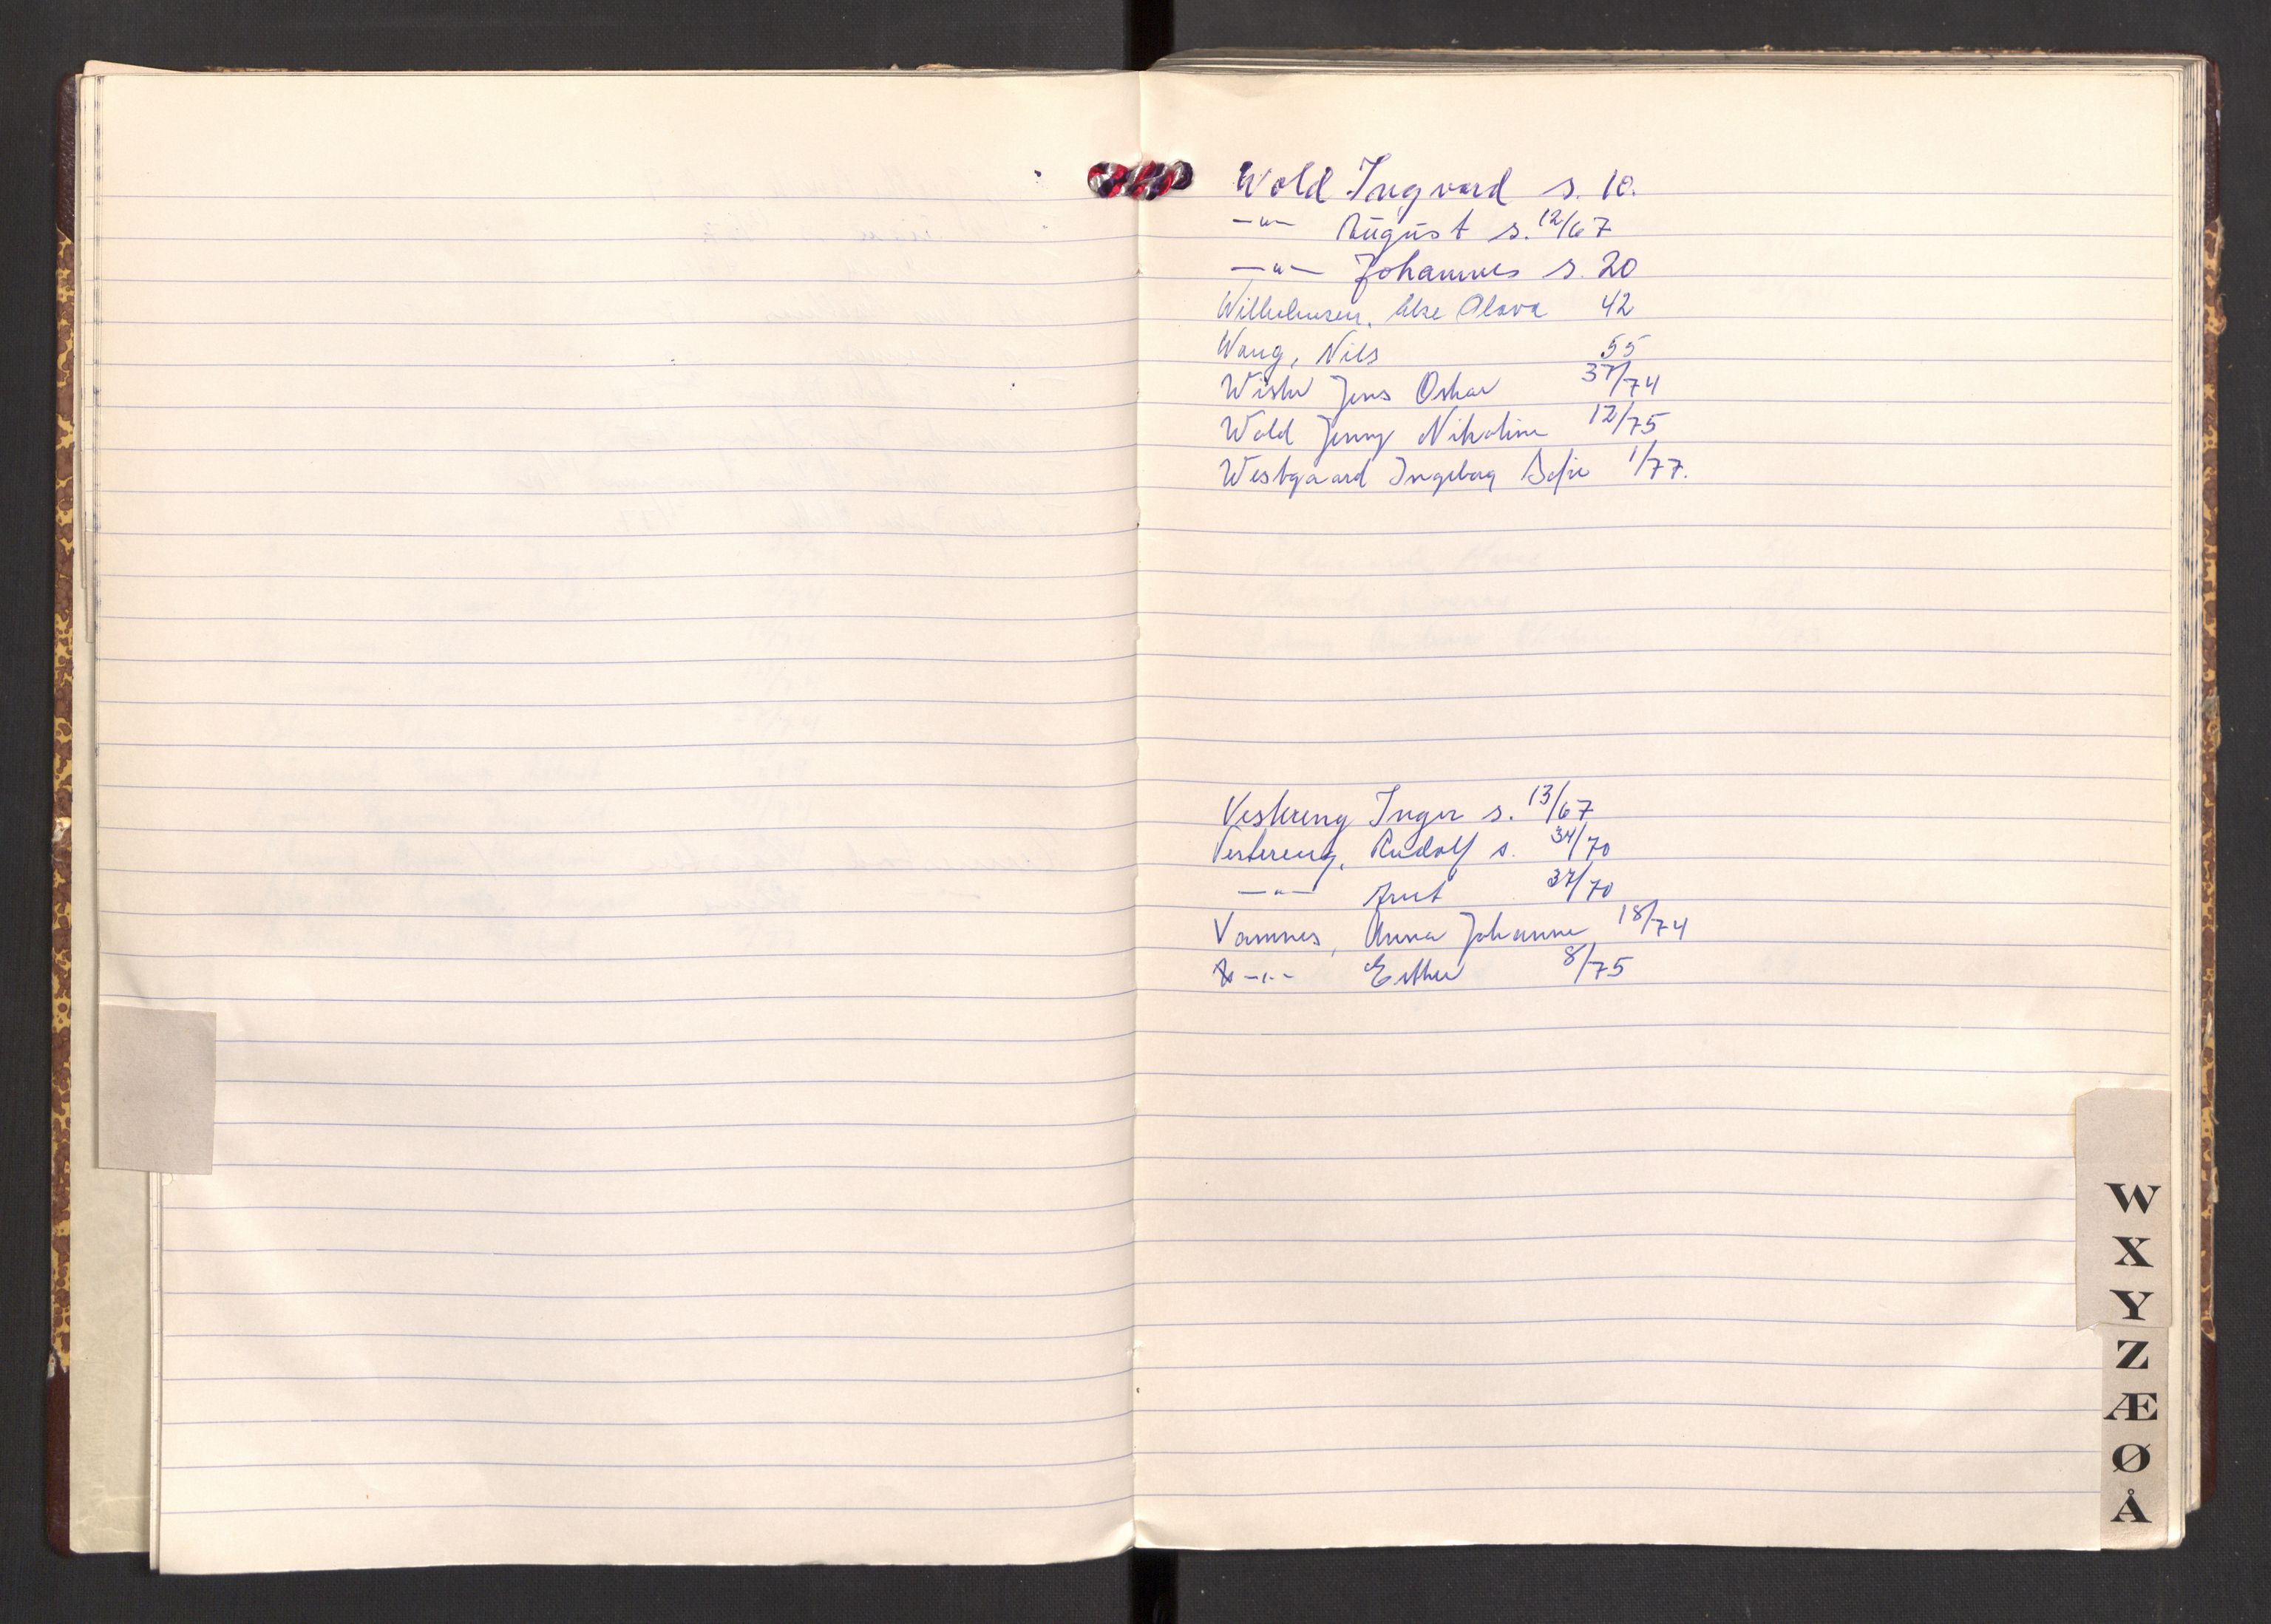 Wold Ingvard s. 10.
—"— August s. 12/67
—"— Johannes s. 20
Wilhelmsen, Else Olava 42
Wang, Nils 55
Wister Jens Oskar 37/74
Wold Jenny Nikoline 12/75
Westgaard Ingeborg Sofie 1/77.
Vestreng Inger s. 13/67
Vestereng, Rudolf s. 34/70
—"— Arnt 37/70
Vamnes, Anna Johanne 18/74
—"— Esther 8/75
W
X
Y
Z
Æ
Ø
Å